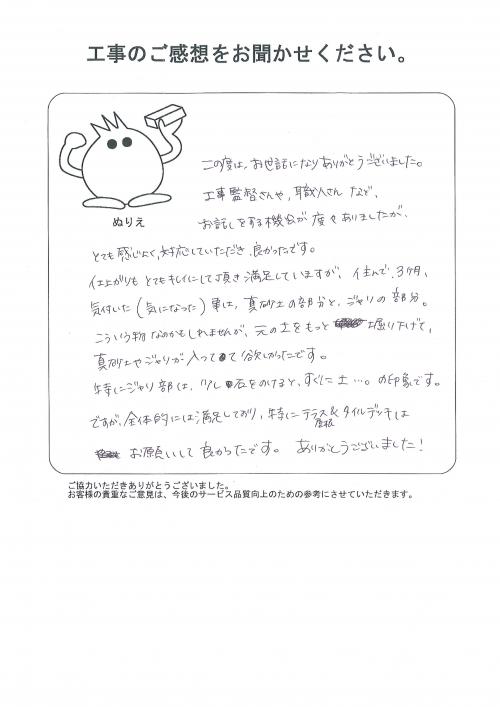 工事のご感想をお聞かせください。
ぬりえ
この度は、お世話になりありがとうございました。
工事監督さんや、職人さん など、
お話しをする機会が度々ありましたが、
とても感じよく、対応していただき、良かったです。
仕上がりも とてもキレイにして頂き満足していますが、住んで、3ヶ月、
気付いた(気になった)事は、真砂土の部分と、ジャリの部分。
こういう物なのかもしれませんが、元の土をもっと 堀り下げて、
真砂土やジャリが入ってて欲しかったです。
特にジャリ部は、少し石をのけると、すぐに土…。の印象です。
ですが、全体的には満足しており、特にテラス屋根&タイルデッキは
お願いして良かったです。 ありがとうございました!
ご協力いただきありがとうございました。
お客様の貴重なご意見は、今後のサービス品質向上のための参考にさせていただきます。